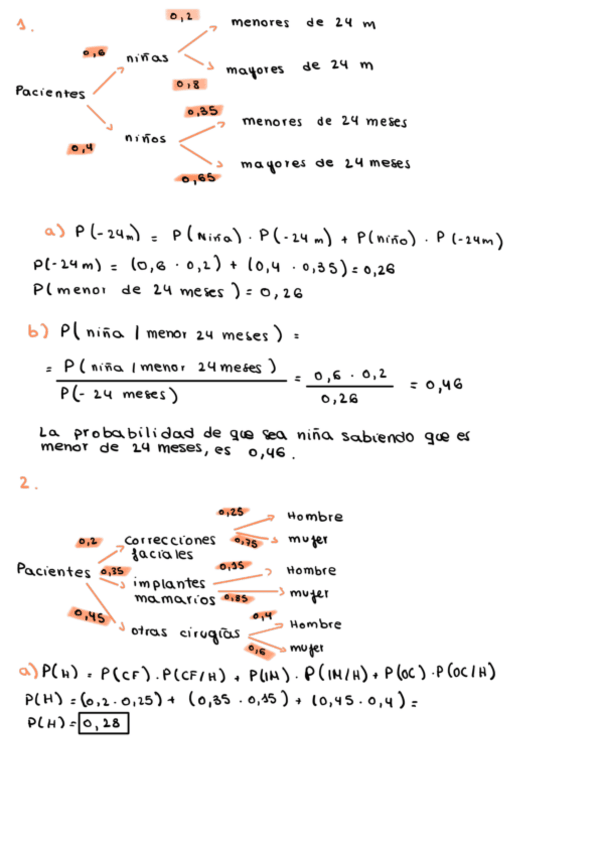 1.
0,2
menores de 24 m
0,6
niñas
mayores de 24 m
0,8
Pacientes
0,35
menores de 24 meses
niños
0,4
mayores de 24 meses
0,65
a) P(-24m) = P(Niña) · P(-24 m) + P(niño) · P(-24m)
P(-24m) = (0,6 · 0,2) + (0,4 · 0,35) = 0,26
P(menor de 24 meses) = 0,26
b) P( niña / menor 24 meses ) =
= P( niña / menor 24 meses )
P(- 24 meses)
= 0,6 · 0,2
0,26
= 0,46
La probabilidad de que sea niña sabiendo que es
menor de 24 meses, es 0,46.
2.
0,25
Hombre
0,2
correcciones
faciales
0,75
mujer
Pacientes
0,35
implantes
mamarios
0,15
Hombre
0,85
mujer
0,45
otras cirugías
0,4
Hombre
0,6
mujer
a) P(H) = P(CF) · P(CF/H) + P(IM) · P(IM/H) + P(OC) · P(OC/H)
P(H) = (0,2 · 0,25) + (0,35 · 0,15) + (0,45 · 0,4) =
P(H) = 0,28